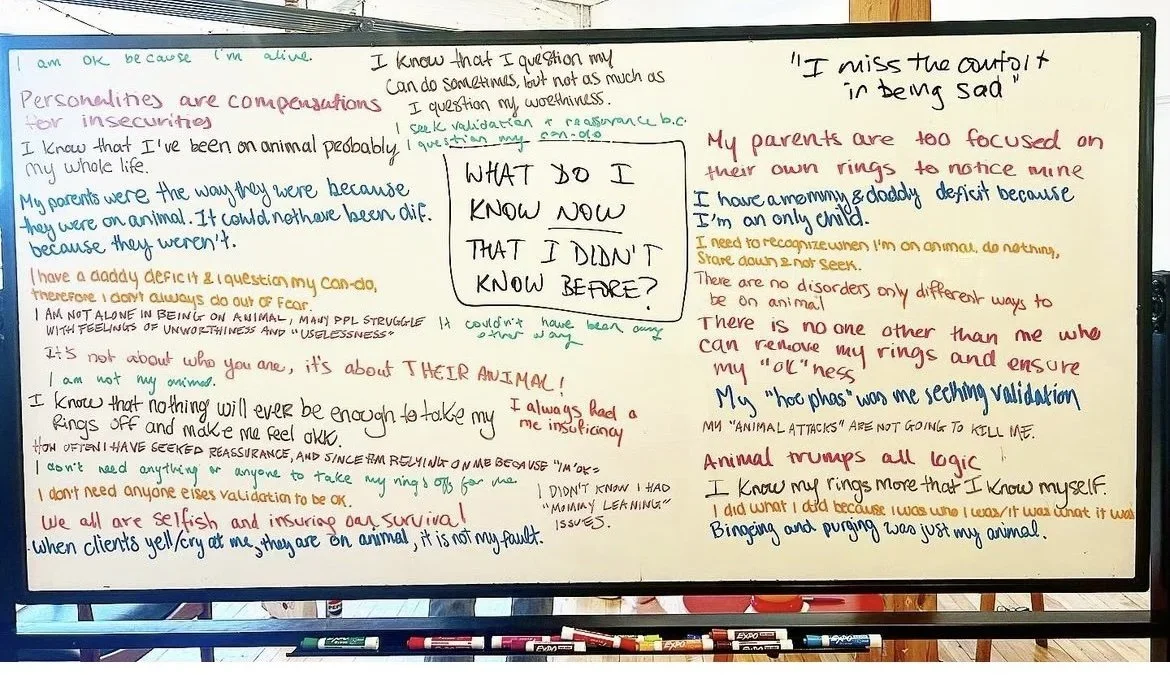 I am OK because I'm alive.
Personalities are compensations
for insecurities
I know that I've been on animal probably
my whole life.
My parents were the way they were because
they were on animal. It could not have been dif.
because they weren't.
I have a daddy deficit & I question my can-do,
therefore I don't always do out of fear.
I AM NOT ALONE IN BEING ON ANIMAL, MANY PPL STRUGGLE
WITH FEELINGS OF UNWORTHINESS AND "USELESSNESS"
It's not about who you are, it's about THEIR ANIMAL!
I am not my animal.
I know that nothing will ever be enough to take my
rings off and make me feel okk.
HOW OFTEN I HAVE SEEKED REASSURANCE, AND SINCE AM RELYING ON ME BECAUSE "I'M OK"
I don't need anything or anyone to take my rings off for me
I don't need anyone elses validation to be ok.
We all are selfish and insuring our survival
when clients yell/cry at me, they are on animal, it is not my fault.
I know that I question my
can do sometimes, but not as much as
I question my worthiness.
I seek validation + reassurance b.c.
I question my can-do
WHAT DO I
KNOW NOW
THAT I DIDN'T
KNOW BEFORE?
It couldn't have been any
other way
I always had a
me insuficincy
I DIDN'T KNOW I HAD
"MOMMY LEANING"
ISSUES.
"I miss the comfort
in being sad"
My parents are too focused on
their own rings to notice mine
I have a mommy & daddy deficit because
I'm an only child.
I need to recognize when I'm on animal, do nothing,
Stare down & not seek.
There are no disorders only different ways to
be on animal
There is no one other than me who
can remove my rings and ensure
my "ok"ness
My "hoe phas" was me seeking validation
MY "ANIMAL ATTACKS" ARE NOT GOING TO KILL ME.
Animal trumps all logic
I know my rings more that I know myself.
I did what I did because I was who I was/it was what it was
Bingeing and purging was just my animal.
EXPO
EXPO
EXPO